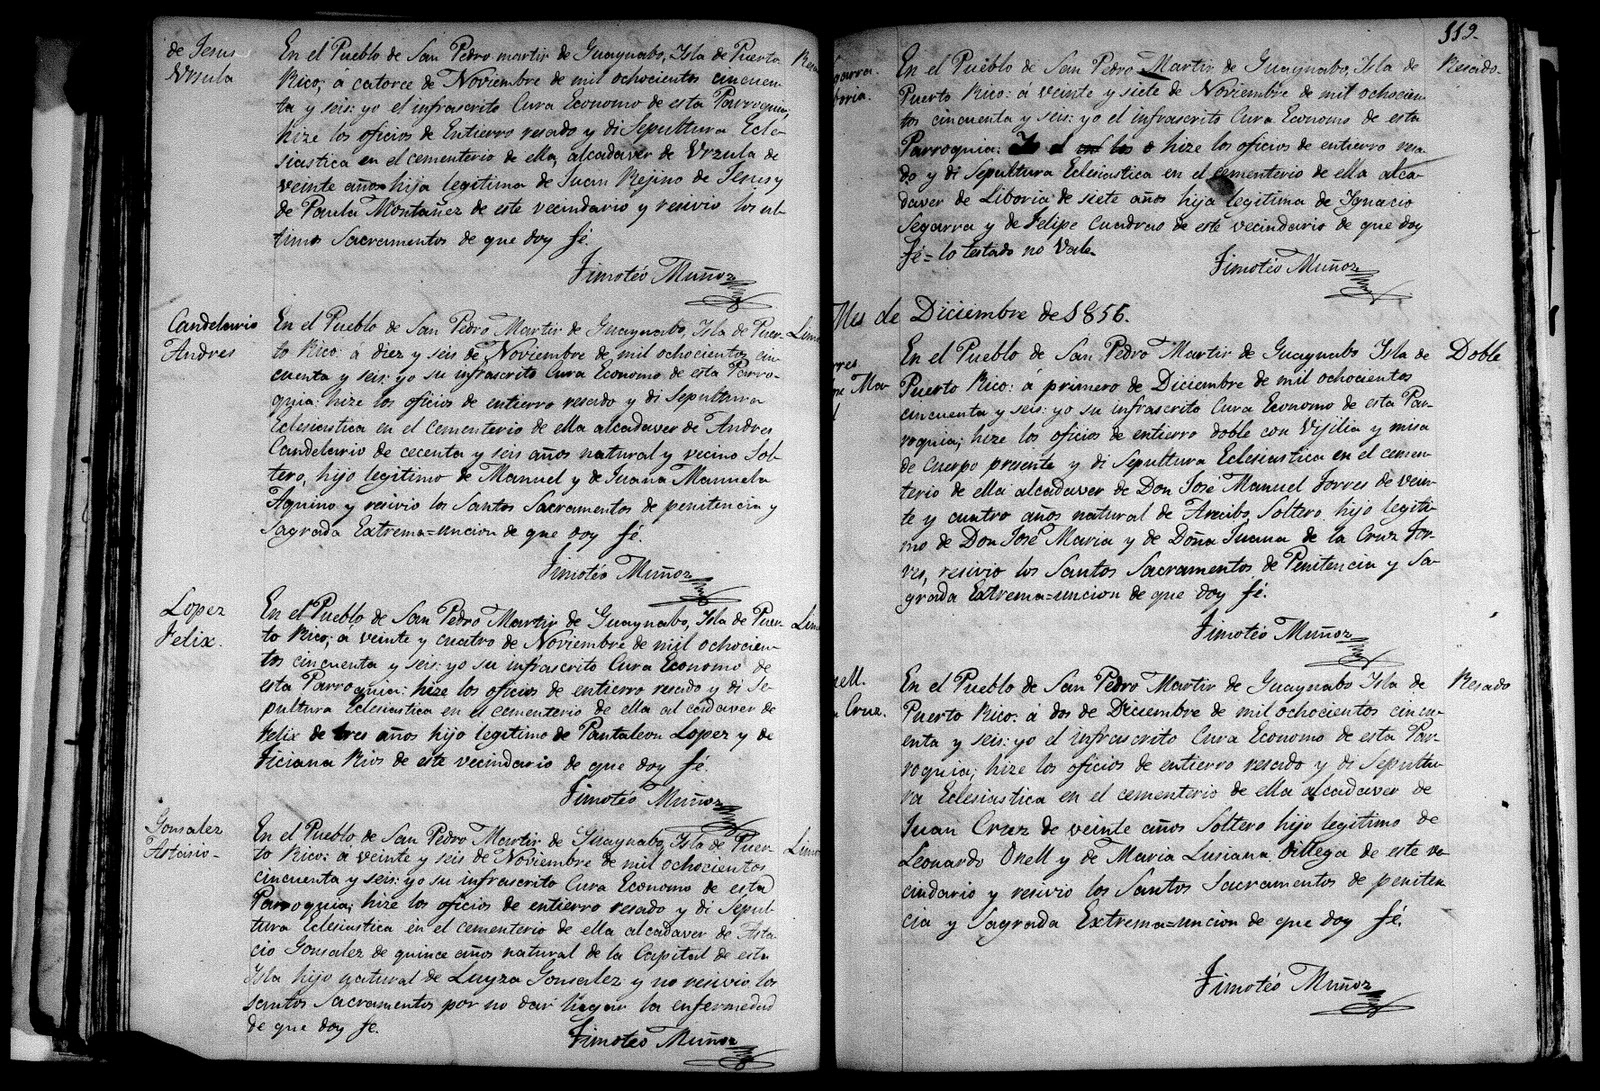 de Jesus
Vrsula
En el Pueblo de San Pedro martir de Guaynabo, Ysla de Puerto
Rico; á catorce de Noviembre de mil ochocientos cincuen-
ta y seis: yo el infrascrito Cura Economo de esta Parroquia;
hize los oficios de Entierro resado y di Sepultura Ecle-
siastica en el cementerio de ella, alcadaver de Vrzula de
veinte años hija legitima de Juan Rejino de Jesus y
de Paula Montañez de este vecindario y resivio los ul-
timos Sacramentos de que doy fé.
Timotéo Muñoz
Candelario
Andres
En el Pueblo de San Pedro Martir de Guaynabo, Ysla de Puer-
to Rico: á diez y seis de Noviembre de mil ochocientos cin-
cuenta y seis: yo su infrascrito Cura Economo de esta Parro-
quia: hize los oficios de entierro resado y di Sepultura
Eclesiastica en el cementerio de ella alcadaver de Andres
Candelario de cecenta y seis años natural y vecino Sol-
tero, hijo legitimo de Manuel y de Juana Manuela
Aquino y resivio los Santos Sacramentos de penitencia y
Sagrada Extrema=uncion de que doy fé.
Timotéo Muñoz
Lopez
Felix.
En el Pueblo de San Pedro Martir de Guaynabo, Ysla de Puer-
to Rico; á veinte y cuatro de Noviembre de mil ochocien-
tos cincuenta y seis: yo su infrascrito Cura Economo de
esta Parroquia: hize los oficios de entierro resado y di Se-
pultura Eclesiastica en el cementerio de ella al cadaver de
Felix de tres años hijo legitimo de Pantaleon Lopez y de
Ficiana Rios de este vecindario de que doy fé.
Timotéo Muñoz
Gonsalez
Astasio-
En el Pueblo de San Pedro Martir de Guaynabo, Ysla de Puer-
to Rico: á veinte y seis de Noviembre de mil ochocientos
cincuenta y seis: yo su infrascrito Cura Economo de esta
Parroquia; hize los oficios de entierro resado y di Sepul-
tura Eclesiastica en el cementerio de ella alcadaver de Asta-
cio Gonsalez de quince años natural de la Capital de esta
Ysla hijo natural de Luyza Gonsalez y no resivio los
santos Sacramentos por no dar lugar la enfermedad
de que doy fé.
Timotéo Muñoz
112.
En el Pueblo de San Pedro Martir de Guaynabo, Ysla de
Puerto Rico: á veinte y siete de Noviembre de mil ochocien-
tos cincuenta y seis: yo el infrascrito Cura Economo de esta
Parroquia: hize los oficios de entierro resa-
do y di Sepultura Eclesiastica en el cementerio de ella alca-
daver de Liboria de siete años hija legitima de Ygnacio
Segarra y de Felipe Cuadrao de este vecindario de que doy
fé= lo testado no Vale.
Timotéo Muñoz
Resado.
Mes de Diciembre de 1856.
En el Pueblo de San Pedro Martir de Guaynabo Ysla de
Puerto Rico: á primero de Diciembre de mil ochocientos
cincuenta y seis: yo su infrascrito Cura Economo de esta Par-
roquia; hize los oficios de entierro doble con Vijilia y misa
de Cuerpo presente y di Sepultura Eclesiastica en el cemen-
terio de ella alcadaver de Don José Manuel Torres de vein-
te y cuatro años natural de Aracibo, Soltero, hijo legiti-
mo de Don José Maria y de Doña Juana de la Cruz Tor-
res, resivio los Santos Sacramentos de Penitencia y Sa-
grada Extrema=uncion de que doy fé.
Timotéo Muñoz
Doble
Cruz.
En el Pueblo de San Pedro Martir de Guaynabo Ysla de
Puerto Rico: á dos de Diciembre de mil ochocientos cincu-
enta y seis: yo el infrascrito Cura Economo de esta Par-
roquia; hize los oficios de entierro resado y di Sepultu-
ra Eclesiastica en el cementerio de ella alcadaver de
Juan Cruz de veinte años Soltero hijo legitimo de
Leonardo Onell y de Maria Lusiana Ortega de este ve-
cindario y resivio los Santos Sacramentos de peniten-
cia y Sagrada Extrema=uncion de que doy fé.
Timotéo Muñoz
Resado